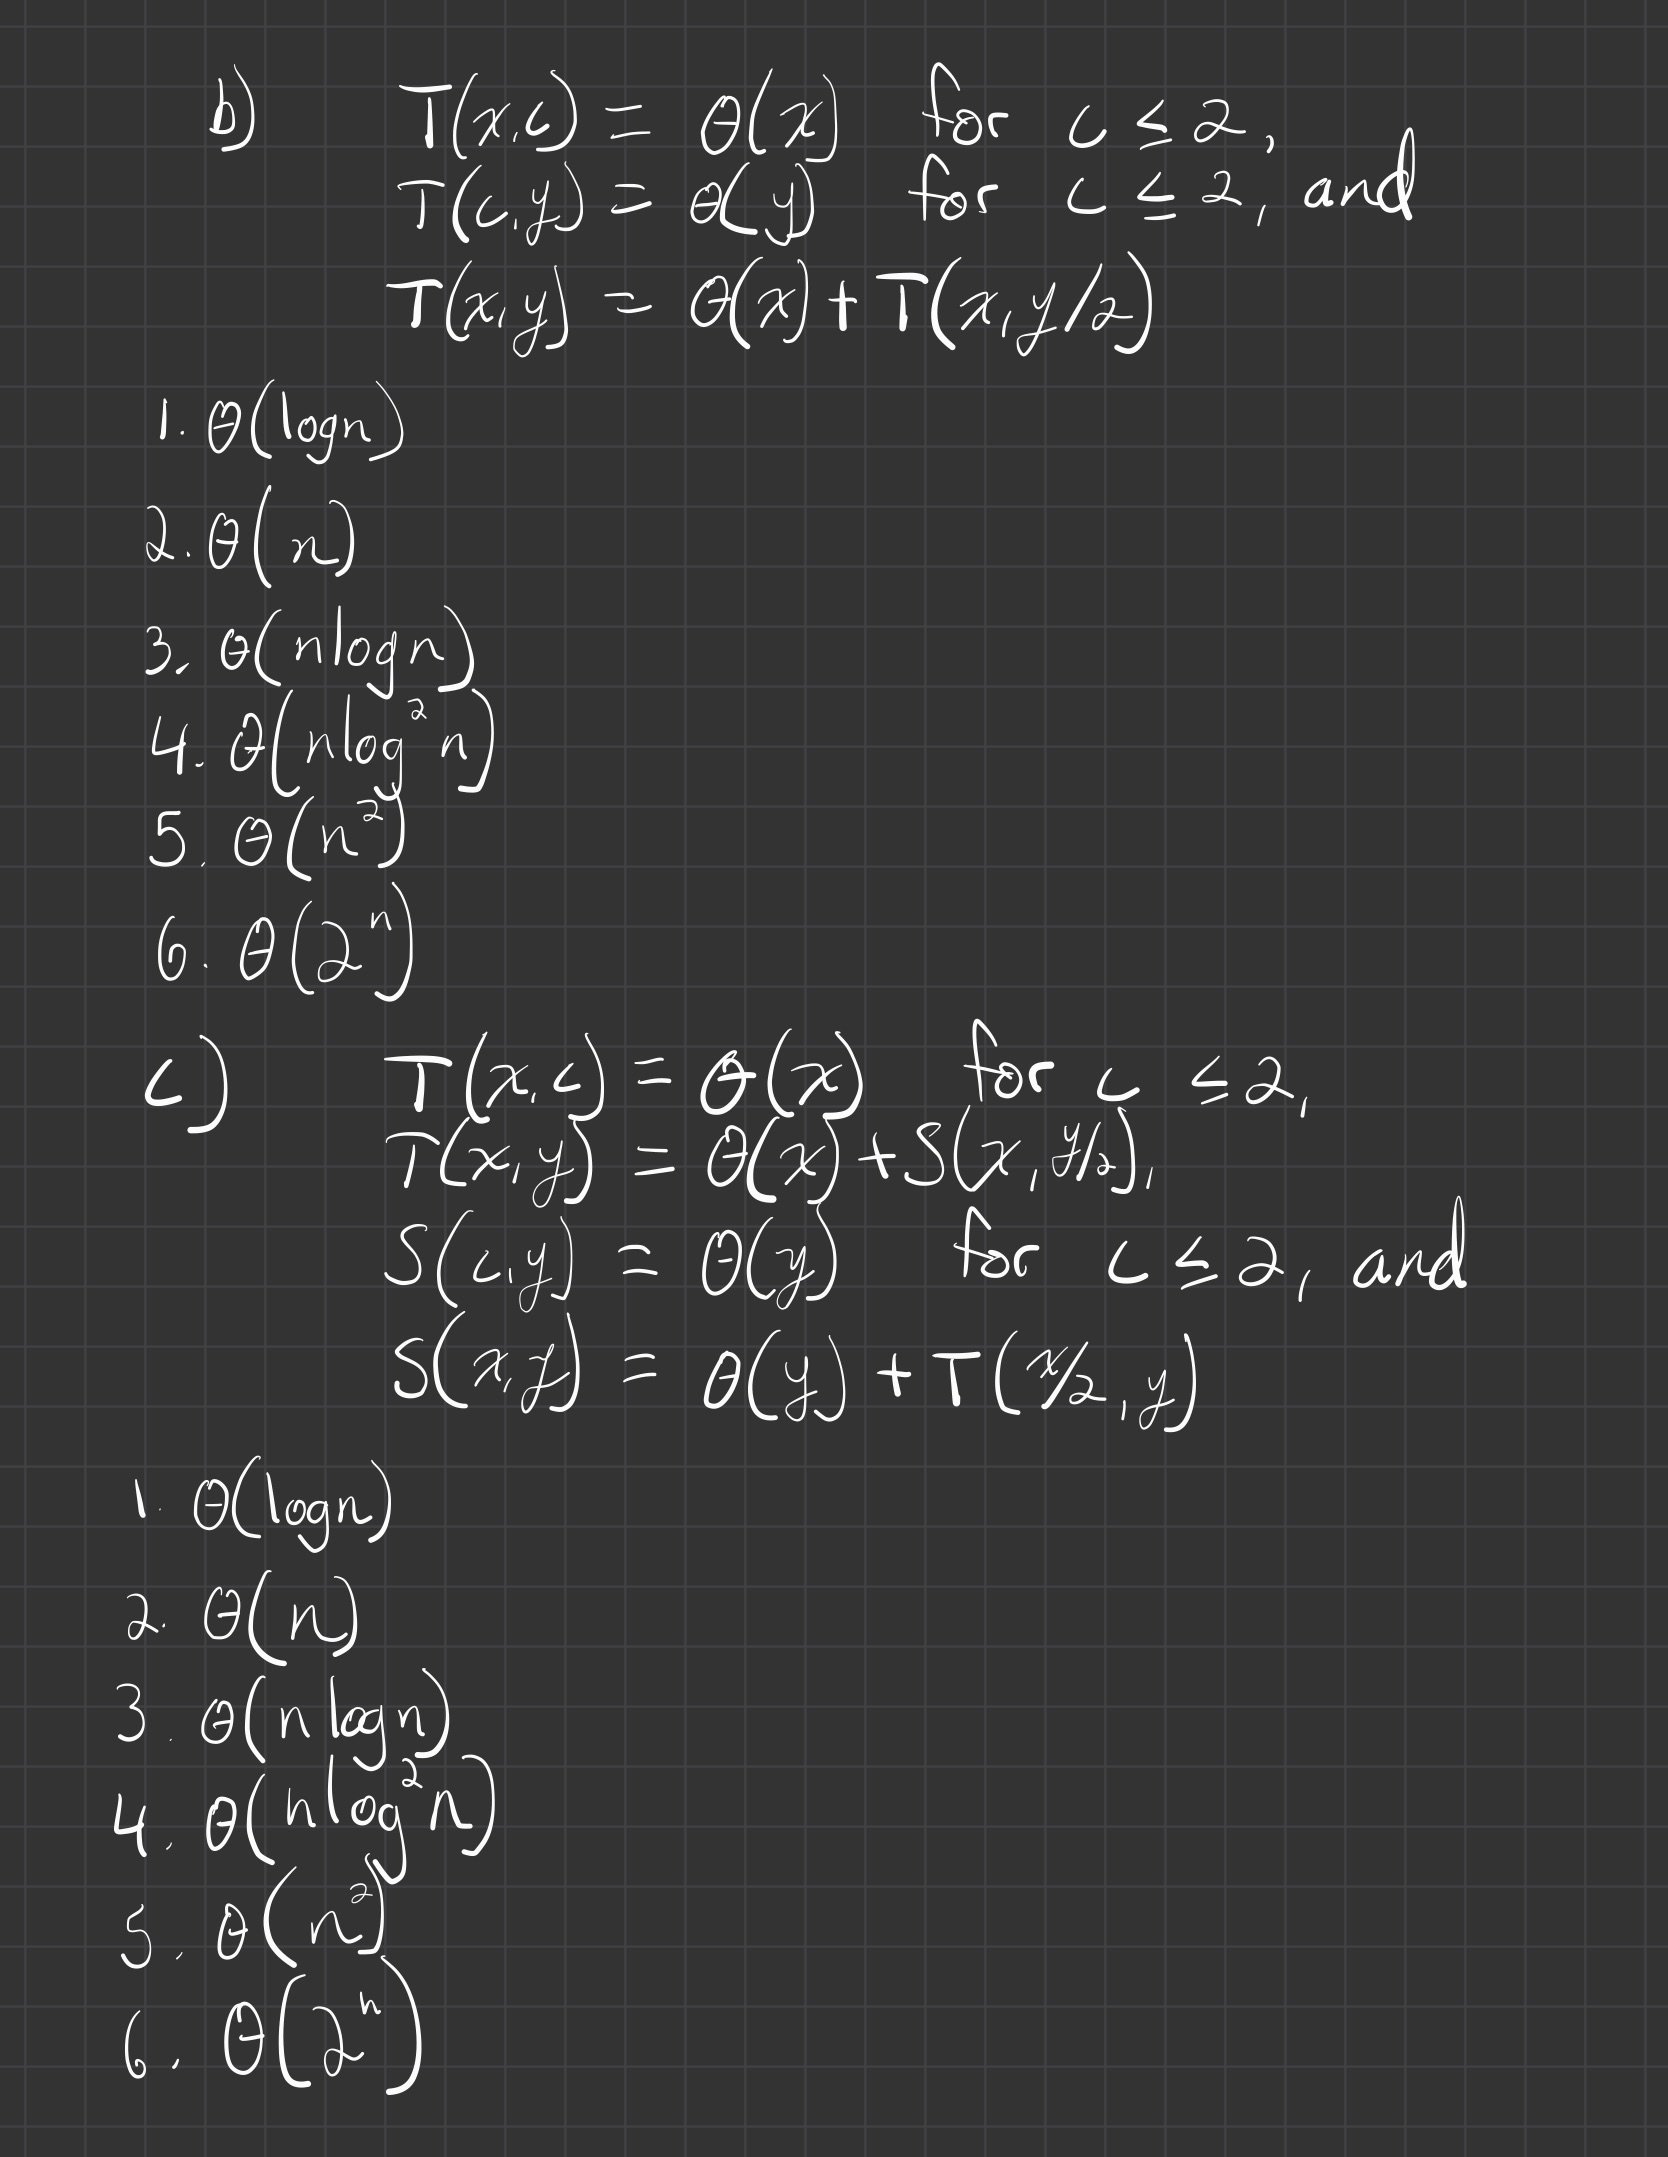 b) T(x,c) = Θ(x) for c ≤ 2,
T(c,y) = Θ(y) for c ≤ 2, and
T(x,y) = Θ(x) + T(x,y/2)
1. Θ(logn)
2. Θ(n)
3. Θ(nlogn)
4. Θ(nlog²n)
5. Θ(n²)
6. Θ(2ⁿ)
c) T(x,c) = Θ(x) for c ≤ 2,
T(x,y) = Θ(x) + S(x,y/2),
S(c,y) = Θ(y) for c ≤ 2, and
S(x,y) = Θ(y) + T(x/2,y)
1. Θ(logn)
2. Θ(n)
3. Θ(nlogn)
4. Θ(nlog²n)
5. Θ(n²)
6. Θ(2ⁿ)